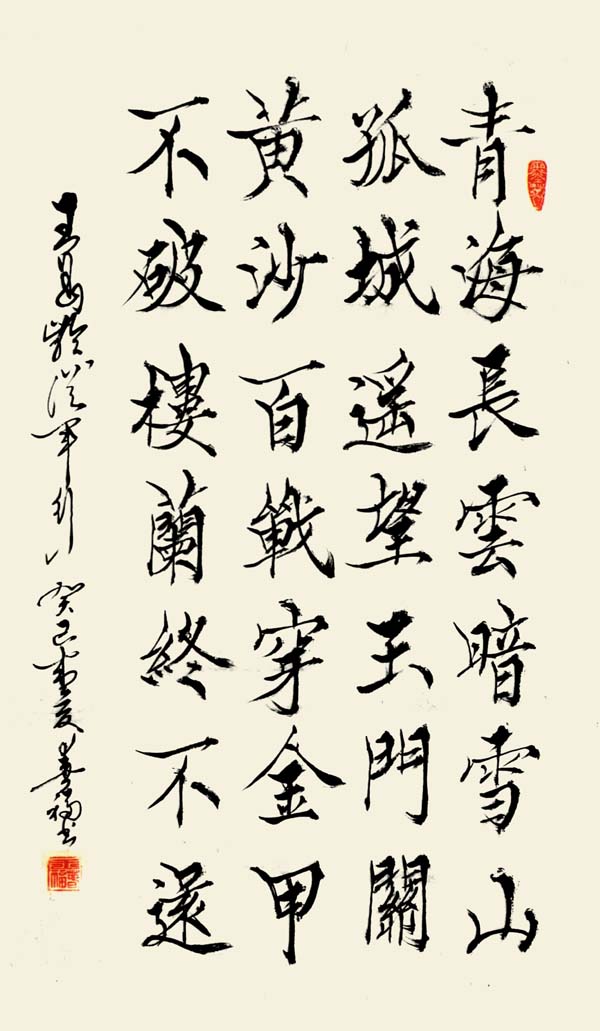 青海長雲暗雪山
孤城遥望玉門關
黄沙百戰穿金甲
不破樓蘭終不還
王昌齡從軍行 癸巳孟夏 善福書